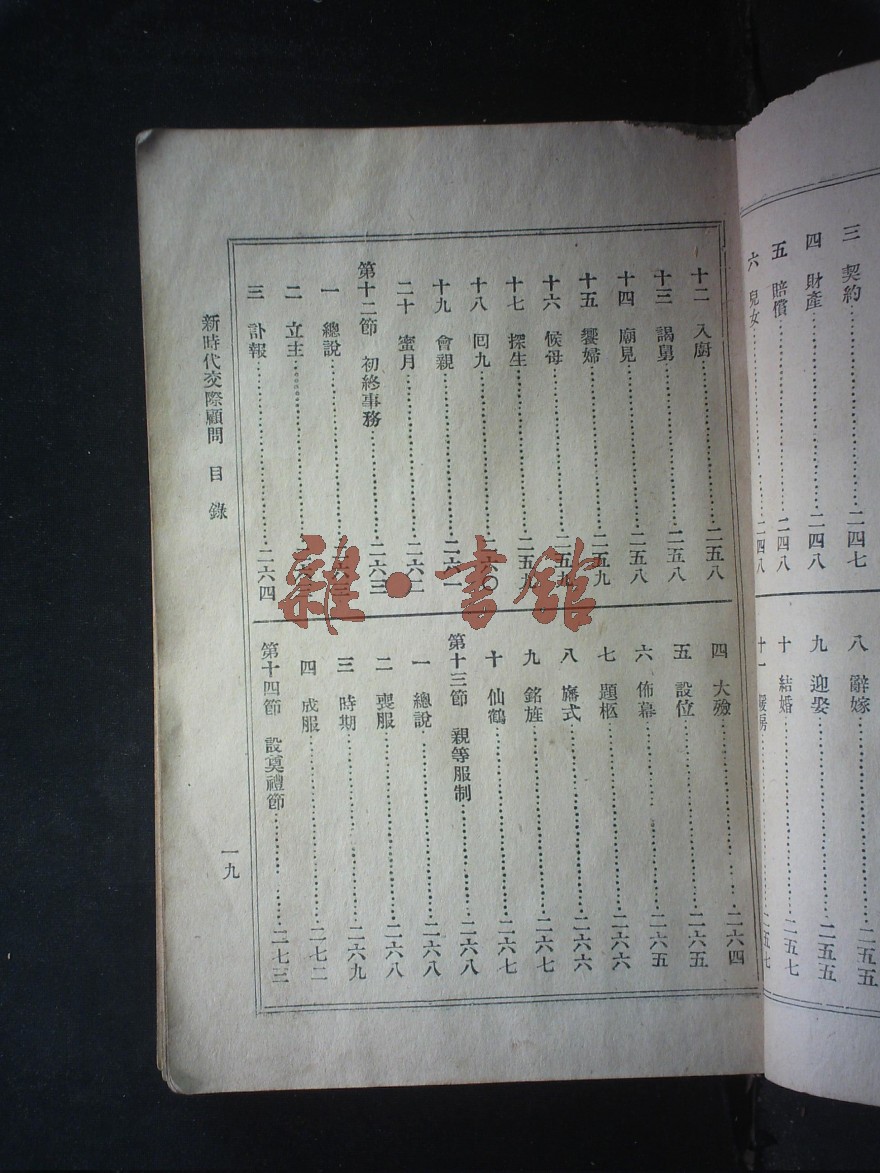 三 契約 二四七
四 財產 二四八
五 賠償 二四八
六 兒女 二四八
八 辭嫁 二五五
九 迎娶 二五五
十 結婚 二五七
十一 房 二五七
十二 入廚 二五八
十三 謁舅 二五八
十四 廟見 二五八
十五 饗婦 二五九
十六 候母 二五九
十七 探生 二五九
十八 回九 二六〇
十九 會親 二六一
二十 蜜月 二六二
第十二節 初終事務 二六三
一 總說 二六三
二 立主 二六
三 訃報 二六四
四 大殮 二六四
五 設位 二六五
六 佈幕 二六五
七 題柩 二六六
八 式 二六六
九 銘旌 二六七
十 仙鶴 二六七
第十三節 親等服制 二六八
一 總說 二六八
二 喪服 二六八
三 時期 二六九
四 成服 二七二
第十四節 設奠禮節 二七三
新時代交際顧問 目錄
一九
雜·書館